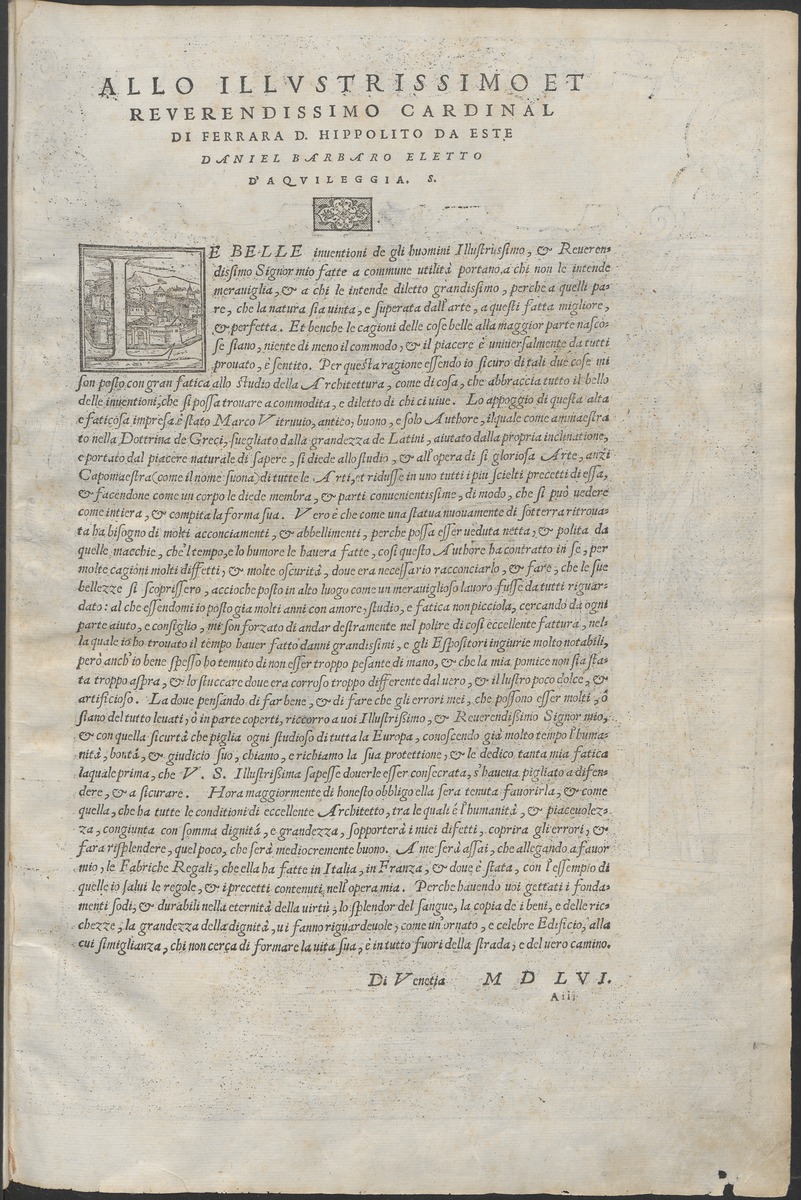 ALLO ILLVSTRISSIMO ET
REVERENDISSIMO CARDINAL
DI FERRARA D. HIPPOLITO DA ESTE
DANIEL BARBARO ELETTO
D'AQVILEGGIA. S.
LE BELLE inuentioni de gli huomini Illustrissimo, & Reueren-
dissimo Signor mio fatte a commune utilità portano, a chi non le intende
merauiglia, & a chi le intende diletto grandissimo, perche a quelli pa-
re, che la natura sia uinta, e superata dall'arte, a questi fatta migliore,
& perfetta. Et benche le cagioni delle cose belle alla maggior parte nasco-
se siano, niente di meno il commodo, & il piacere è uniuersalmente da tutti
prouato, è sentito. Per questa ragione essendo io sicuro di tali due cose mi
son posto con gran fatica allo studio della Architettura, come di cosa, che abbraccia tutto il bello
delle inuentioni, che si possa trouare a commodita, e diletto di chi ci uiue. Lo appoggio di questa alta
e faticosa impresa è stato Marco Vitruuio, antico, buono, e solo Authore, ilquale come ammaestra
to nella Dottrina de Greci, suegliato dalla grandezza de Latini, aiutato dalla propria inclinatione,
e portato dal piacere naturale di sapere, si diede allo studio, & all'opera di si gloriosa Arte, anzi
Capomaestra (come il nome suona) di tutte le Arti, et ridusse in uno tutti i piu scielti precetti di essa,
& facendone come un corpo le diede membra, & parti conuenientissime, di modo, che si può uedere
come intiera, & compita la forma sua. Vero è che come una statua nuouamente di sotterra ritroua-
ta ha bisogno di molti acconciamenti, & abbellimenti, perche possa esser ueduta netta, & polita da
quelle macchie, che'l tempo, e lo humore le hauera fatte, cosi questo Authore ha contratto in se, per
molte cagioni molti diffetti, & molte oscurità, doue era necessario racconciarlo, & fare, che le sue
bellezze si scoprissero, accioche posto in alto luogo come un merauiglioso lauoro fusse da tutti riguar-
dato: al che essendomi io posto gia molti anni con amore, studio, e fatica non picciola, cercando da ogni
parte aiuto, e consiglio, mi son forzato di andar destramente nel polire di cosi eccellente fattura, nel-
la quale io ho trouato il tempo hauer fatto danni grandissimi, e gli Espositori ingiurie molto notabili,
però anch'io bene spesso ho temuto di non esser troppo pesante di mano, & che la mia pomice non sia sta-
ta troppo aspra, & lo stuccare doue era corroso troppo differente dal uero, & il lustro poco dolce, &
artificioso. La doue pensando di far bene, & di fare che gli errori mei, che possono esser molti, ò
siano del tutto leuati, ò in parte coperti, riccorro a uoi Illustrissimo, & Reuerendissimo Signor mio,
& con quella sicurtà che piglia ogni studioso di tutta la Europa, conoscendo già molto tempo l'huma-
nità, bontà, & giudicio suo, chiamo, e richiamo la sua protettione, & le dedico tanta mia fatica
laquale prima, che V. S. Illustrissima sapesse douerle esser consecrata, s'haueua pigliato a difen-
dere, & a sicurare. Hora maggiormente di honesto obbligo ella sera tenuta fauorirla, & come
quella, che ha tutte le conditioni di eccellente Architetto, tra le quali è l'humanità, & piaceuolez-
za, congiunta con somma dignità, e grandezza, sopporterà i miei difetti, coprira gli errori, &
fara risplendere, quel poco, che serà mediocremente buono. A me serà assai, che allegando a fauor
mio, le Fabriche Regali, che ella ha fatte in Italia, in Franza, & doue è stata, con l'essempio di
quelle io salui le regole, & i precetti contenuti nell'opera mia. Perche hauendo uoi gettati i fonda-
menti sodi, & durabili nella eternità della uirtù, lo splendor del sangue, la copia de i beni, e delle ric-
chezze, la grandezza della dignità, ui fanno riguardeuole, come un'ornato, e celebre Edificio, alla
cui simiglianza, chi non cerca di formare la uita sua, è in tutto fuori della strada, e del uero camino.
Di Venetia M D LVI.
A iij